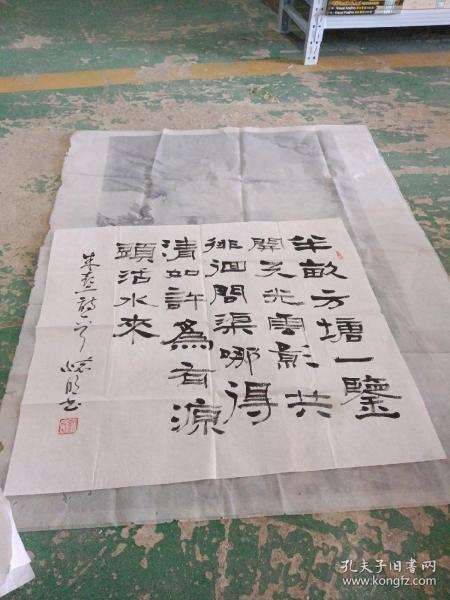 半畝方塘一鑒
開天光雲影共
徘徊問渠哪得
清如許為有源
頭活水來
朱熹詩
孔夫子旧书网
www.kongfz.com